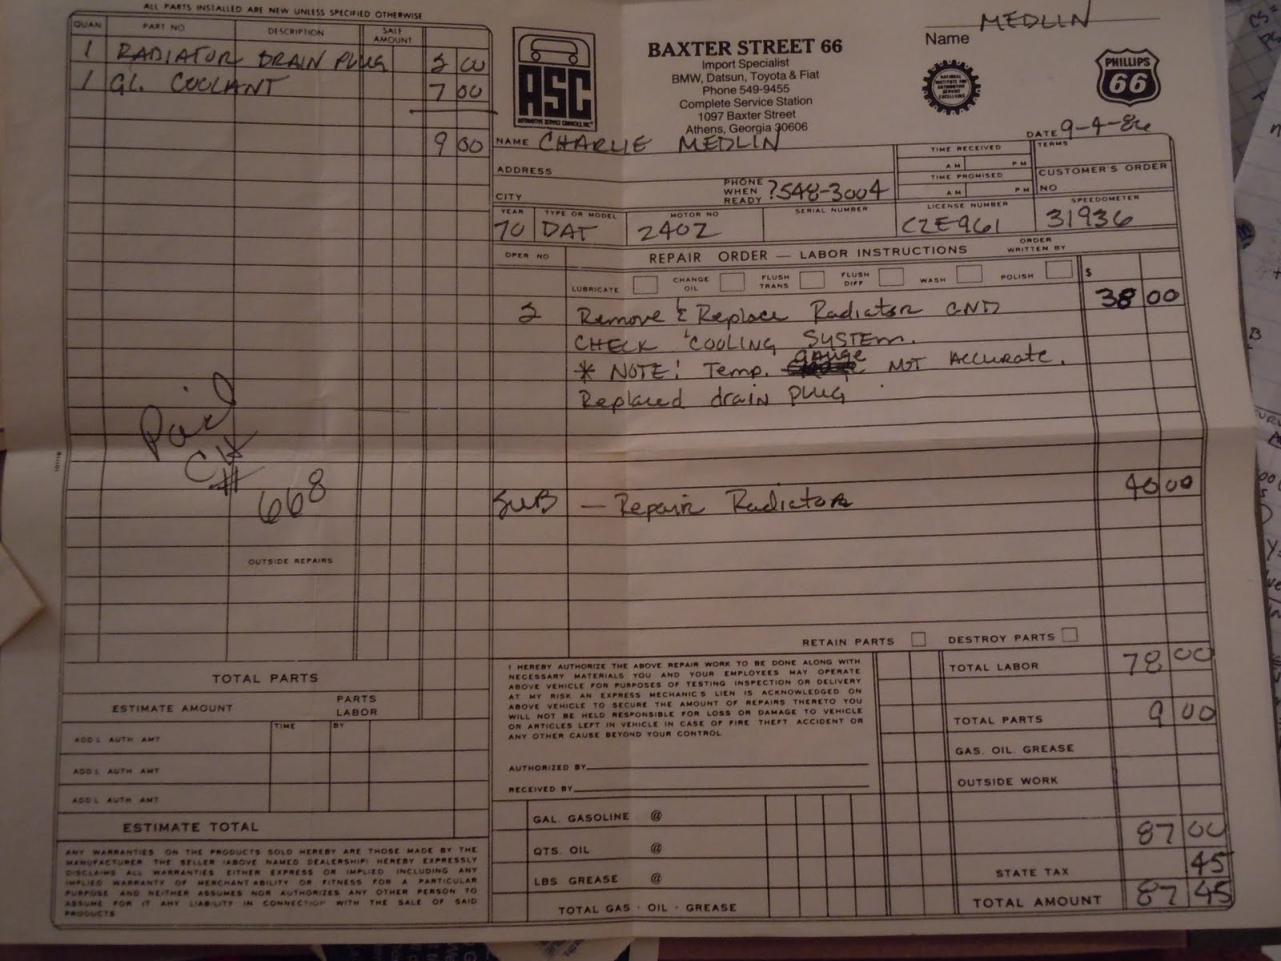 ALL PARTS INSTALLED ARE NEW UNLESS SPECIFIED OTHERWISE
QUAN PART NO DESCRIPTION SALE AMOUNT
1 RADIATOR DRAIN PLUG 2 00
1 GL. COOLANT 7 00
9 00
Paid
CK
# 668
OUTSIDE REPAIRS
TOTAL PARTS
ESTIMATE AMOUNT PARTS LABOR
TIME BY
ADD'L AUTH AMT
ADD'L AUTH AMT
ADD'L AUTH AMT
ESTIMATE TOTAL
ANY WARRANTIES ON THE PRODUCTS SOLD HEREBY ARE THOSE MADE BY THE
MANUFACTURER THE SELLER (ABOVE NAMED DEALERSHIP) HEREBY EXPRESSLY
DISCLAIMS ALL WARRANTIES EITHER EXPRESS OR IMPLIED INCLUDING ANY
IMPLIED WARRANTY OF MERCHANTABILITY OR FITNESS FOR A PARTICULAR
PURPOSE AND NEITHER ASSUMES NOR AUTHORIZES ANY OTHER PERSON TO
ASSUME FOR IT ANY LIABILITY IN CONNECTION WITH THE SALE OF SAID
PRODUCTS
ASC
BAXTER STREET 66
Import Specialist
BMW, Datsun, Toyota & Fiat
Phone 549-9455
Complete Service Station
1097 Baxter Street
Athens, Georgia 30606
Name MEDLIN
PHILLIPS
66
DATE 9-4-86
NAME CHARLIE MEDLIN
TIME RECEIVED AM PM
TERMS
ADDRESS
TIME PROMISED AM PM
CUSTOMER'S ORDER NO
CITY
PHONE WHEN READY ? 548-3004
YEAR TYPE OR MODEL MOTOR NO SERIAL NUMBER LICENSE NUMBER SPEEDOMETER
70 DAT 240Z CZE961 31936
OPER NO REPAIR ORDER — LABOR INSTRUCTIONS ORDER WRITTEN BY
LUBRICATE CHANGE OIL FLUSH TRANS FLUSH DIFF WASH POLISH $
2 Remove & Replace Radiator AND 38 00
CHECK COOLING SYSTEM.
* NOTE: Temp. gauge NOT ACCURATE.
Replaced drain PLUG
SUB — Repair Radiator 40 00
RETAIN PARTS DESTROY PARTS
I HEREBY AUTHORIZE THE ABOVE REPAIR WORK TO BE DONE ALONG WITH
NECESSARY MATERIALS YOU AND YOUR EMPLOYEES MAY OPERATE
ABOVE VEHICLE FOR PURPOSES OF TESTING INSPECTION OR DELIVERY
AT MY RISK AN EXPRESS MECHANIC'S LIEN IS ACKNOWLEDGED ON
ABOVE VEHICLE TO SECURE THE AMOUNT OF REPAIRS THERETO YOU
WILL NOT BE HELD RESPONSIBLE FOR LOSS OR DAMAGE TO VEHICLE
OR ARTICLES LEFT IN VEHICLE IN CASE OF FIRE THEFT ACCIDENT OR
ANY OTHER CAUSE BEYOND YOUR CONTROL
AUTHORIZED BY
RECEIVED BY
GAL. GASOLINE @
QTS. OIL @
LBS GREASE @
TOTAL GAS - OIL - GREASE
TOTAL LABOR 78 00
TOTAL PARTS 9 00
GAS. OIL. GREASE
OUTSIDE WORK
87 00
STATE TAX 45
TOTAL AMOUNT 87 45